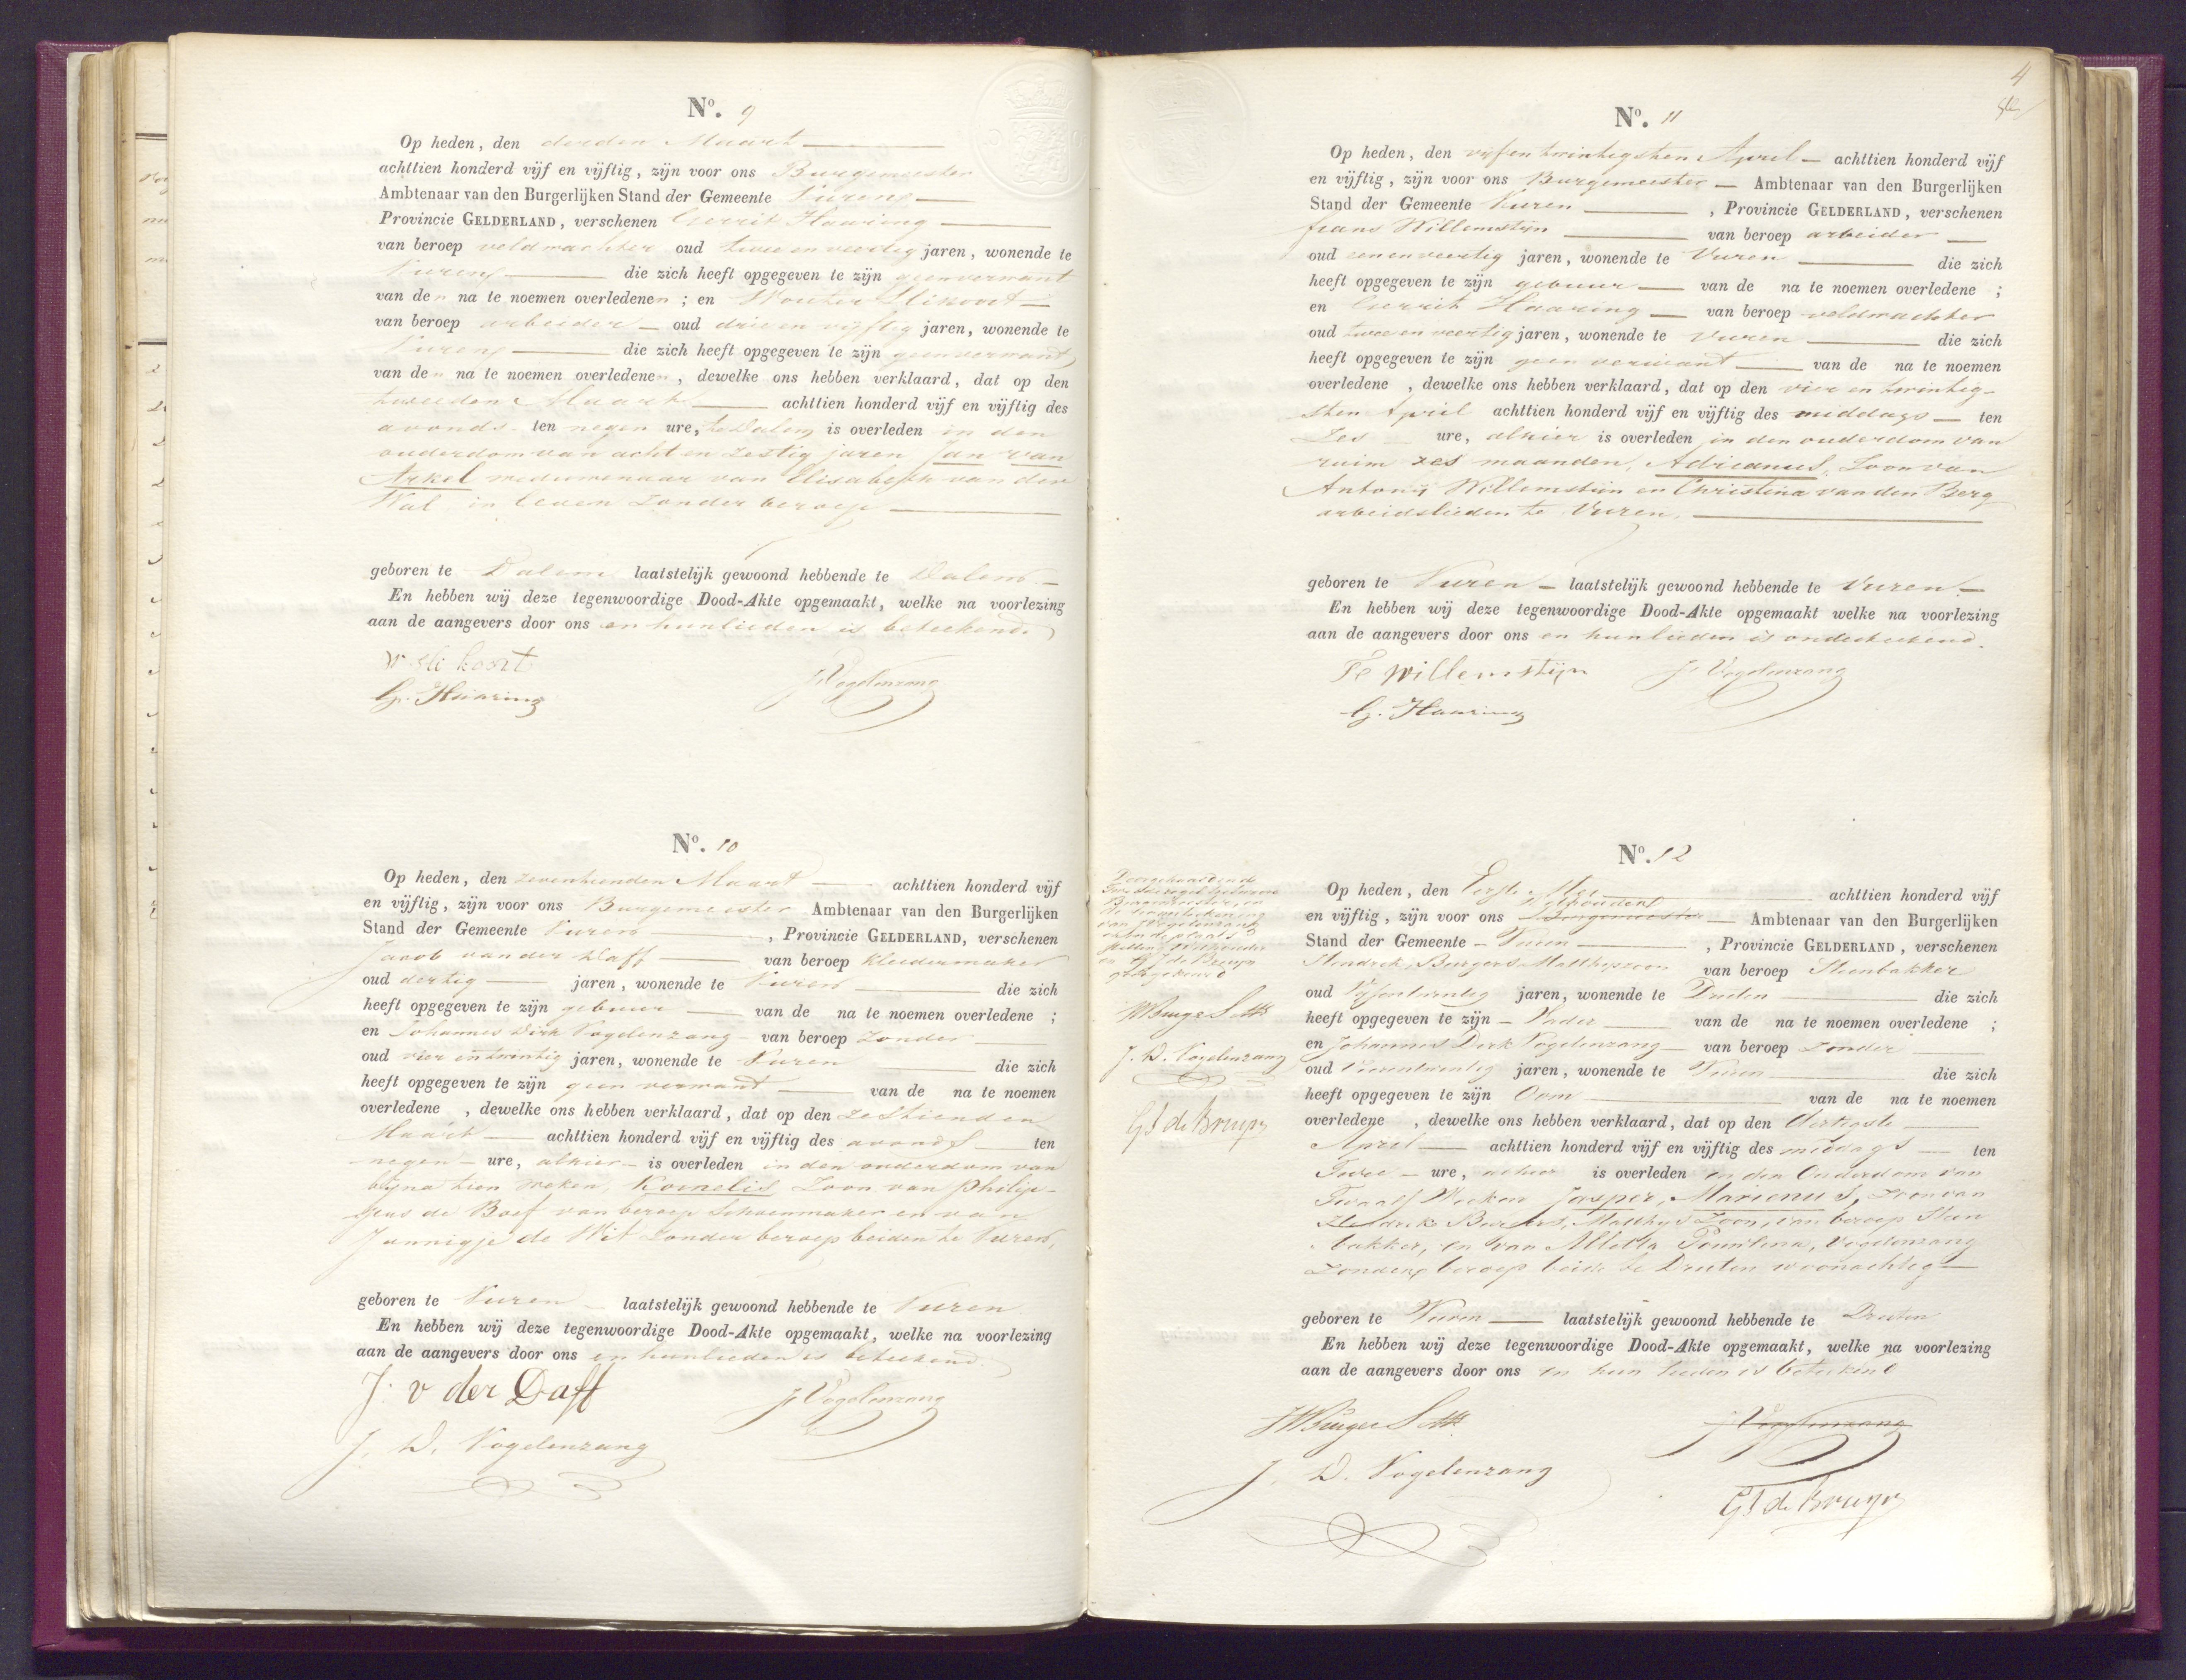 Nº. 9
Op heden, den derden Maart
achttien honderd vijf en vijftig, zijn voor ons Burgemeester
Ambtenaar van den Burgerlijken Stand der Gemeente Vuren
Provincie GELDERLAND, verschenen Gerrit Haaring
van beroep veldwachter oud twee en veertig jaren, wonende te
Vuren die zich heeft opgegeven te zijn geen verwant
van den na te noemen overledenen ; en Wouter Slikoort
van beroep arbeider oud drie en vijftig jaren, wonende te
Vuren die zich heeft opgegeven te zijn geen verwant
van den na te noemen overledenen, dewelke ons hebben verklaard, dat op den
tweeden Maart achttien honderd vijf en vijftig des
avonds ten negen ure, te Dalem is overleden in den
ouderdom van acht en zestig jaren Jan van
Arkel weduwenaar van Elisabeth van der
Wal in leven zonder beroep
geboren te Dalem laatstelijk gewoond hebbende te Dalem
En hebben wij deze tegenwoordige Dood-Akte opgemaakt, welke na voorlezing
aan de aangevers door ons en hunlieden is beteekend.
W Slikoort
G. Haaring
J Vogelenzang
Nº. 10
Op heden, den zeventienden Maart achttien honderd vijf
en vijftig, zijn voor ons Burgemeester Ambtenaar van den Burgerlijken
Stand der Gemeente Vuren, Provincie GELDERLAND, verschenen
Jacob van der Daff van beroep kleedermaker
oud dertig jaren, wonende te Vuren die zich
heeft opgegeven te zijn gebuur van de na te noemen overledene ;
en Johannes Dirk Vogelenzang van beroep zonder
oud vier en twintig jaren, wonende te Vuren die zich
heeft opgegeven te zijn geen verwant van de na te noemen
overledene , dewelke ons hebben verklaard, dat op den zestienden
Maart achttien honderd vijf en vijftig des avonds ten
negen ure, alhier is overleden in den ouderdom van
bijna tien weken, Kornelis Zoon van Philip-
pus de Boef van beroep Schoenmaker en van
Jannigje de Wit zonder beroep beiden te Vuren,
geboren te Vuren laatstelijk gewoond hebbende te Vuren
En hebben wij deze tegenwoordige Dood-Akte opgemaakt, welke na voorlezing
aan de aangevers door ons en hunlieden is beteekend.
J: v der Daff
J Vogelenzang
J. D. Vogelenzang
4
Nº. 11
Op heden, den vijf en twintigsten April achttien honderd vijf
en vijftig, zijn voor ons Burgemeester Ambtenaar van den Burgerlijken
Stand der Gemeente Vuren, Provincie GELDERLAND, verschenen
frans Willemstijn van beroep arbeider
oud een en veertig jaren, wonende te Vuren die zich
heeft opgegeven te zijn gebuur van de na te noemen overledene ;
en Gerrit Haaring van beroep veldwachter
oud twee en veertig jaren, wonende te Vuren die zich
heeft opgegeven te zijn geen verwant van de na te noemen
overledene , dewelke ons hebben verklaard, dat op den vier en twintig-
sten April achttien honderd vijf en vijftig des middags ten
Zes ure, alhier is overleden in den ouderdom van
ruim zes maanden, Adrianus, Zoon van
Antonij Willemstijn en Christina van den Berg
arbeidslieden te Vuren.
geboren te Vuren laatstelijk gewoond hebbende te Vuren
En hebben wij deze tegenwoordige Dood-Akte opgemaakt welke na voorlezing
aan de aangevers door ons en hunlieden is onderteekend.
Fs Willemstijn
J. Vogelenzang
G. Haaring
Nº. 12
Op heden, den Eerste Mei achttien honderd vijf
Wethouder
en vijftig, zijn voor ons Burgemeester Ambtenaar van den Burgerlijken
Stand der Gemeente Vuren, Provincie GELDERLAND, verschenen
Hendrik Burgers Matthijszoon van beroep Steenbakker
oud Vijfentwintig jaren, wonende te Druten die zich
heeft opgegeven te zijn Vader van de na te noemen overledene ;
en Johannes Dirk Vogelenzang van beroep zonder
oud Vierentwintig jaren, wonende te Vuren die zich
heeft opgegeven te zijn Oom van de na te noemen
overledene , dewelke ons hebben verklaard, dat op den dertigste
April achttien honderd vijf en vijftig des middags ten
Twee ure, alhier is overleden in den Ouderdom van
Twaalf Weeken Jasper, Marienus, Zoon van
Hendrik Burgers, Matthijs Zoon, van beroep Steen
bakker, en van Alletta Vogelenzang
zonder beroep beide te Druten woonachtig
geboren te Vuren laatstelijk gewoond hebbende te Druten
En hebben wij deze tegenwoordige Dood-Akte opgemaakt, welke na voorlezing
aan de aangevers door ons en hun lieden is beteekend
J Vogelenzang
J. D. Vogelenzang
GJ de Bruyn
Doorgehaald
Burgemeester, en
de onderteekening
van J Vogelenzang
Wethouder
en GJ de Bruyn
goedgekeurd
J. D. Vogelenzang
GJ de Bruyn